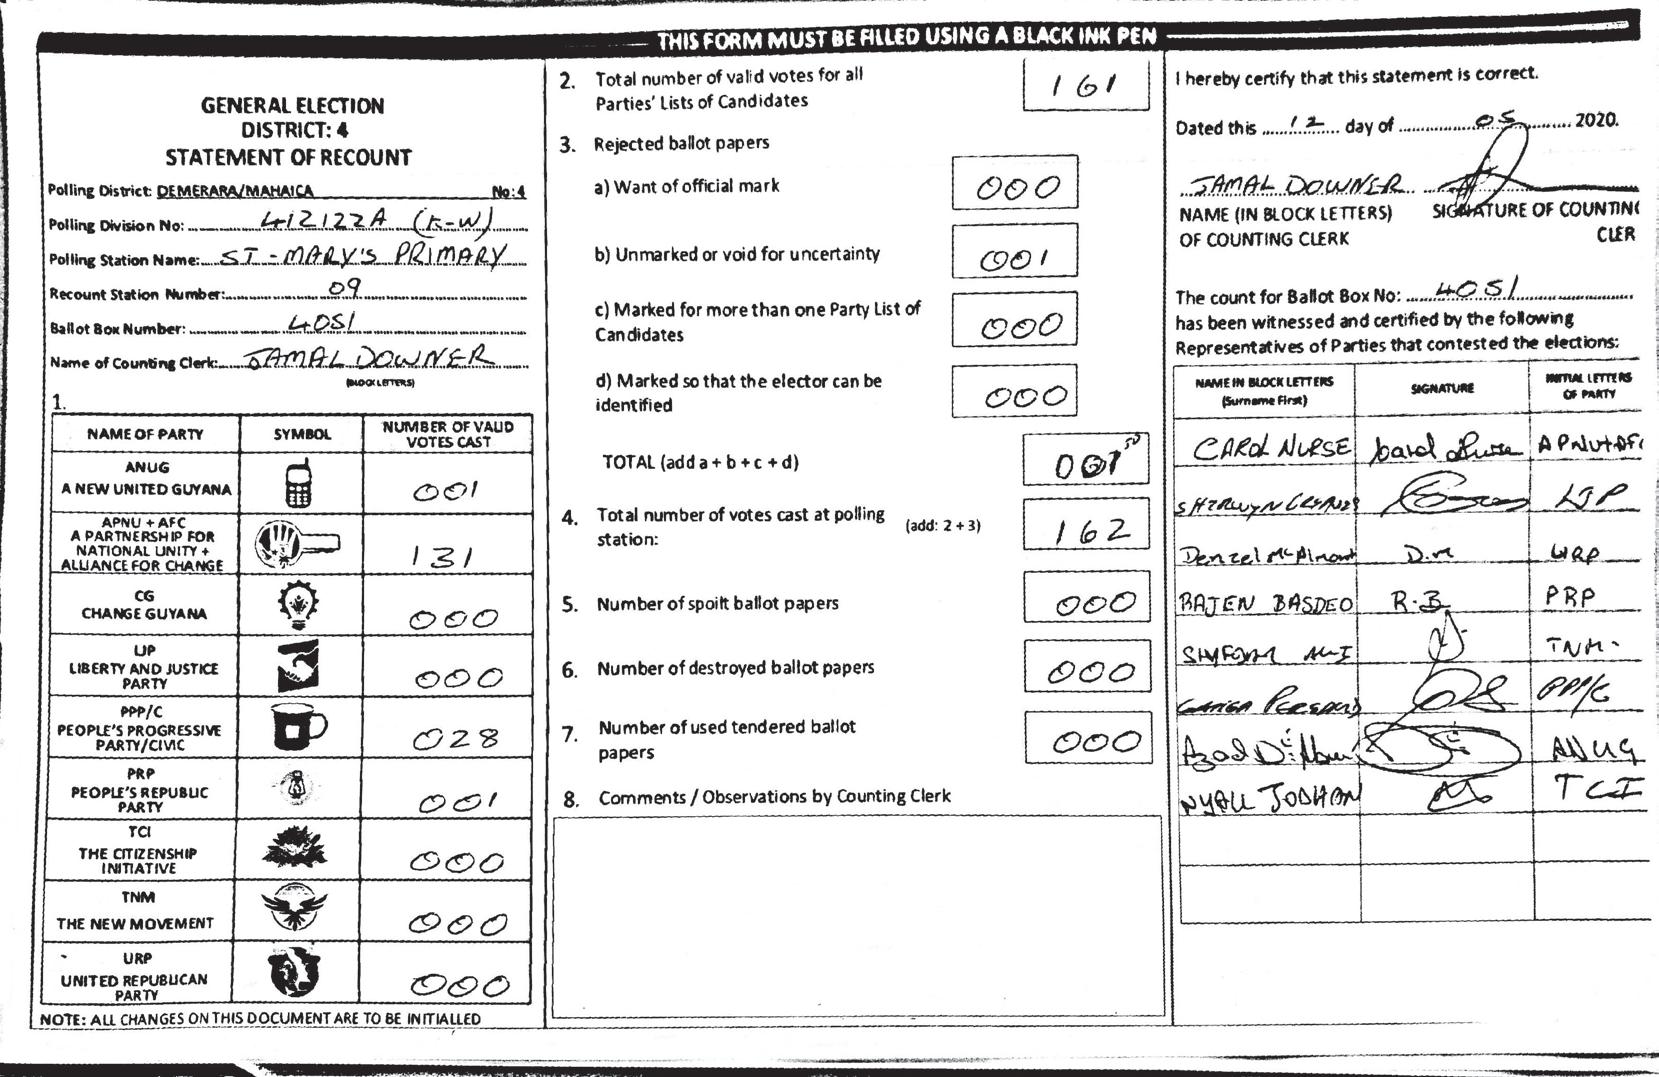 THIS FORM MUST BE FILLED USING A BLACK INK PEN
GENERAL ELECTION
DISTRICT: 4
STATEMENT OF RECOUNT
Polling District: DEMERARA/MAHAICA No:4
Polling Division No: 412122A (K-W)
Polling Station Name: ST-MARY'S PRIMARY
Recount Station Number: 09
Ballot Box Number: 4051
Name of Counting Clerk: JAMAL DOWNER
(BLOCK LETTERS)
1.
NAME OF PARTY SYMBOL NUMBER OF VALID VOTES CAST
ANUG
A NEW UNITED GUYANA 001
APNU + AFC
A PARTNERSHIP FOR
NATIONAL UNITY +
ALLIANCE FOR CHANGE 131
CG
CHANGE GUYANA 000
LJP
LIBERTY AND JUSTICE
PARTY 000
PPP/C
PEOPLE'S PROGRESSIVE
PARTY/CIVIC 028
PRP
PEOPLE'S REPUBLIC
PARTY 001
TCI
THE CITIZENSHIP
INITIATIVE 000
TNM
THE NEW MOVEMENT 000
URP
UNITED REPUBLICAN
PARTY 000
NOTE: ALL CHANGES ON THIS DOCUMENT ARE TO BE INITIALLED
2. Total number of valid votes for all
Parties' Lists of Candidates 161
3. Rejected ballot papers
a) Want of official mark 000
b) Unmarked or void for uncertainty 001
c) Marked for more than one Party List of
Candidates 000
d) Marked so that the elector can be
identified 000
TOTAL (add a + b + c + d) 001
4. Total number of votes cast at polling
station: (add: 2 + 3) 162
5. Number of spoilt ballot papers 000
6. Number of destroyed ballot papers 000
7. Number of used tendered ballot
papers 000
8. Comments / Observations by Counting Clerk
I hereby certify that this statement is correct.
Dated this 12 day of 05 2020.
JAMAL DOWNER
NAME (IN BLOCK LETTERS) SIGNATURE OF COUNTIN
OF COUNTING CLERK CLER
The count for Ballot Box No: 4051
has been witnessed and certified by the following
Representatives of Parties that contested the elections:
NAME IN BLOCK LETTERS (Surname First) SIGNATURE INITIAL LETTERS OF PARTY
CAROL NURSE Carol Nurse APNU+AF
LJP
Denzel McAlmont D.M URP
RAJEN BASDEO R.B PRP
TNM
PPP/C
Azad ANUG
NYALL JODHAN TCI